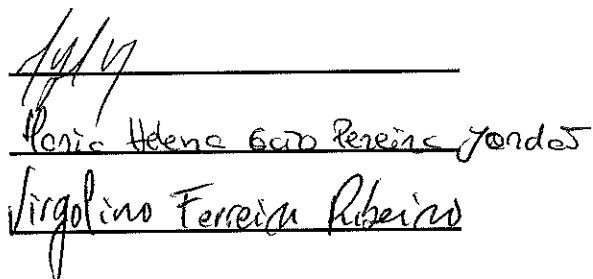 Maria Helena Gato Pereira Jordão
Virgolino Ferreira Ribeiro